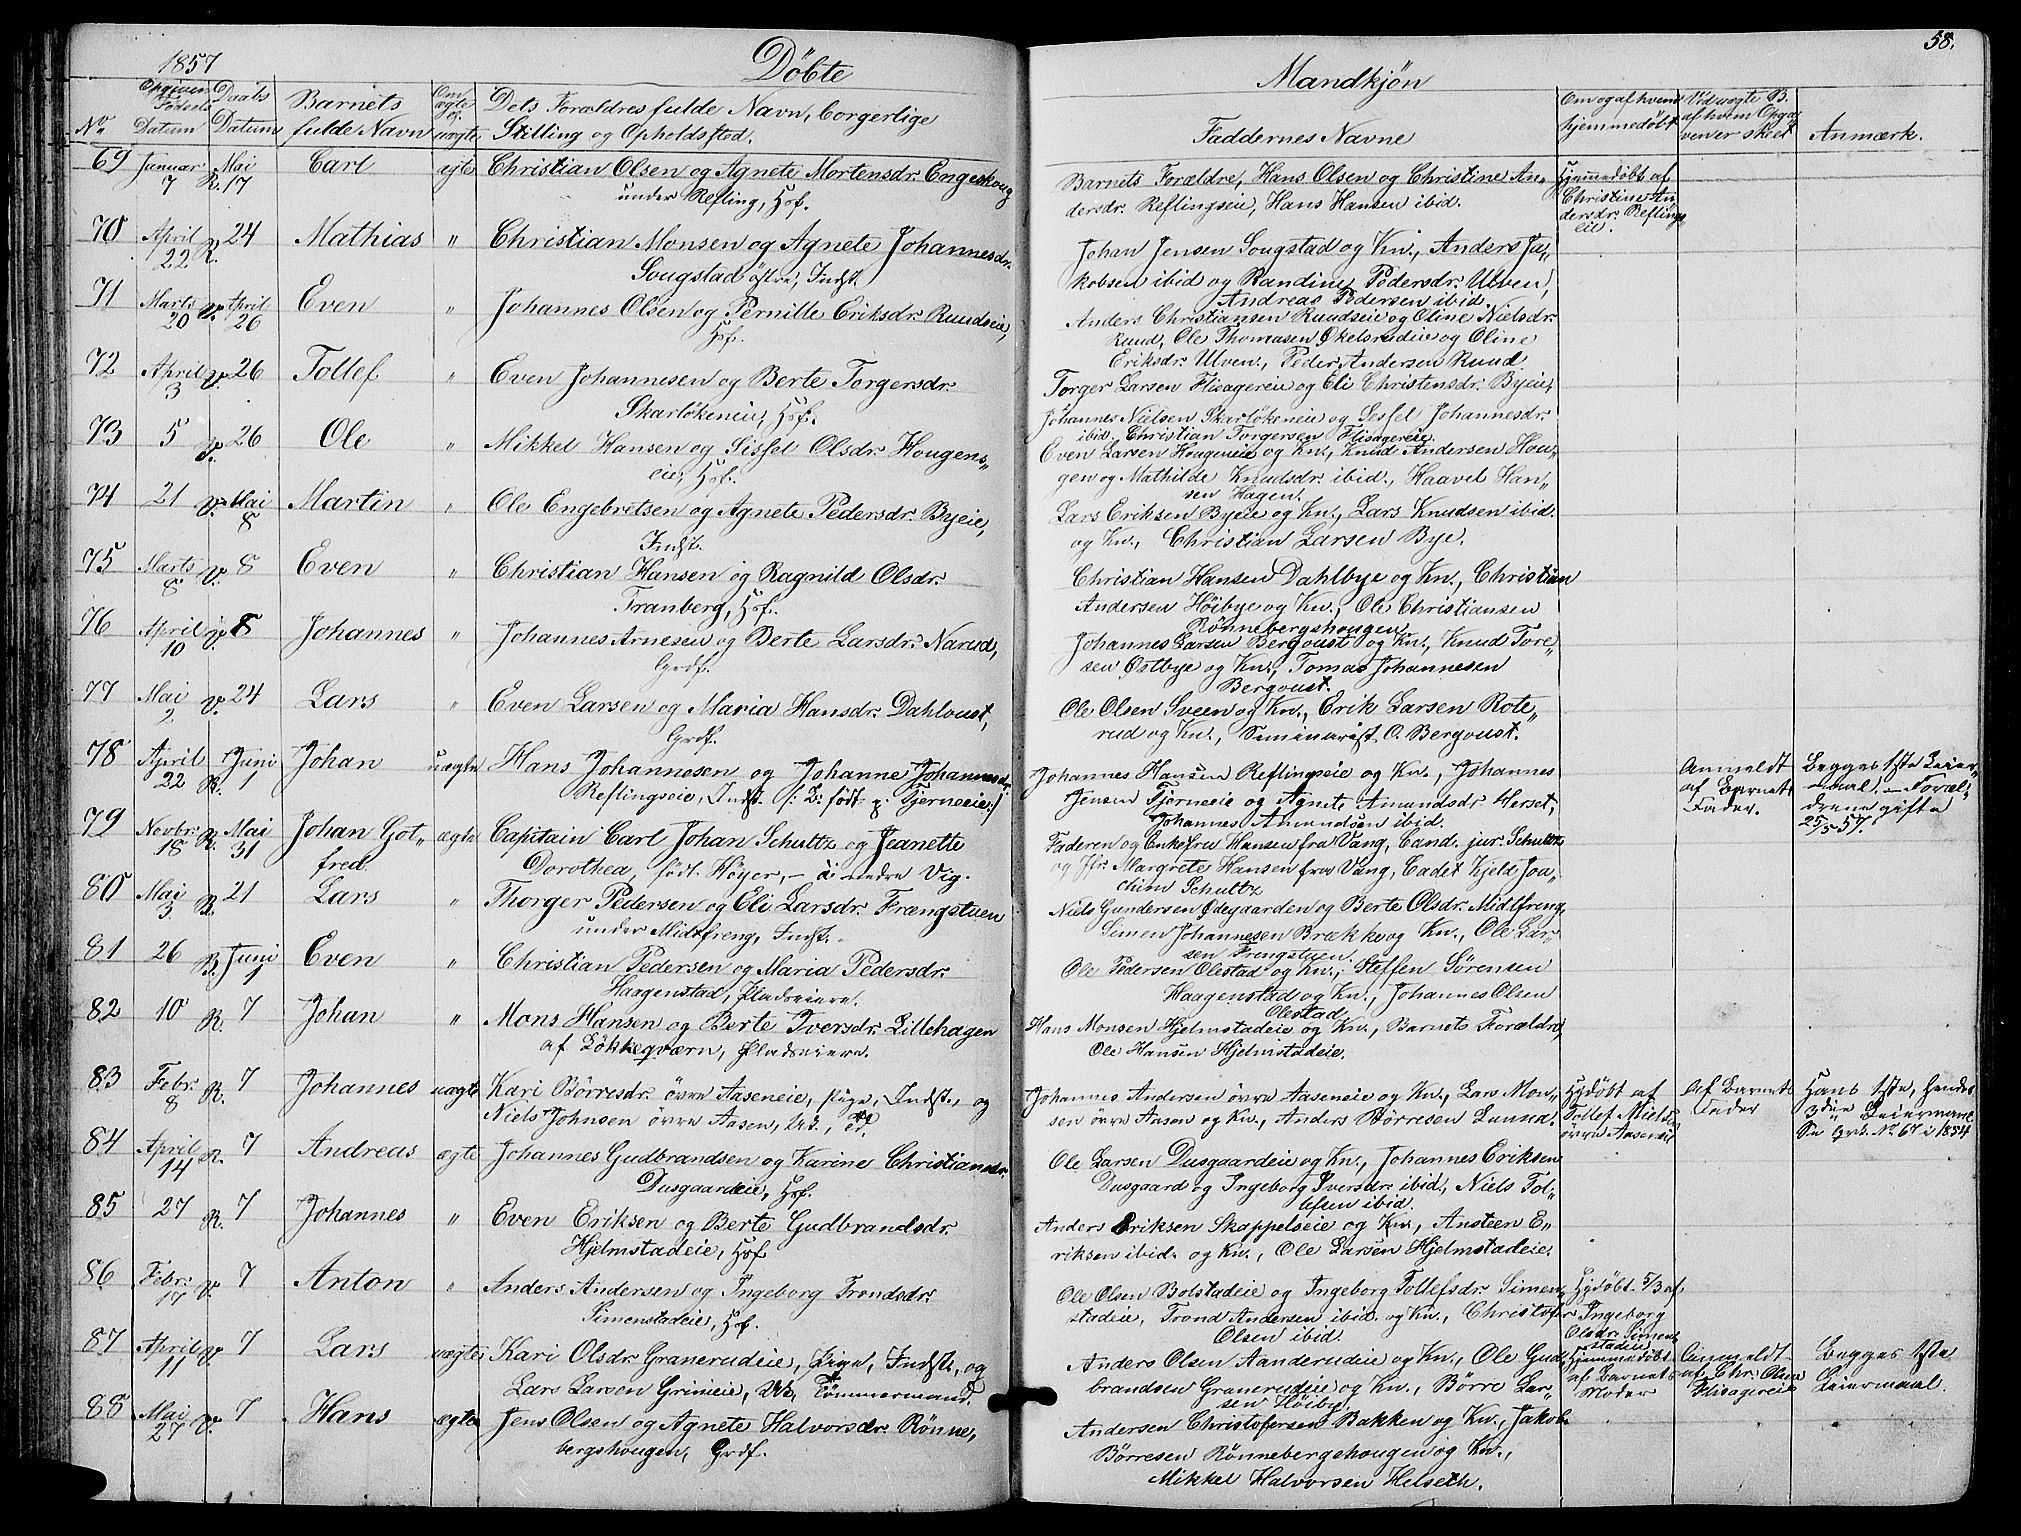 1857
Döbte
Mandkjön
58.
No
Opgiven Fødsels Datum
Daabs Datum
Barnets fulde Navn
Om ægte el. uægte
Dets Forældres fulde Navn, borgerlige
Stilling og Opholdssted.
Faddernes Navne
Om og af hvem hjemmedøbt
Ved uægte B. af hvem Opgaven er skeet
Anmærk.
69 Januar 7 Mai R. 17 Carl ægte Christian Olsen og Agnete Mortensdr. Engeskoug
under Refling, Hsf.
Barnets Forældre, Hans Olsen og Christine An„
dersdr. Reflingseie, Hans Hansen ibid.
Hjemmedøbt af
Christine An„
dersdr. Reflings„
eie.
70 April 22 R. 24 Mathias „ Christian Monsen og Agnete Johannesdr.
Sougstad östre, Indst.
Johan Jensen Sougstad og Kn., Anders Ja„
kobsen ibid og Randine Pedersdr. Ulven,
Andreas Pedersen ibid.
71 Marts 20 V. April 26 Even „ Johannes Olsen og Pernille Eriksdr. Ruudseie,
Hsf.
Anders Christiansen Ruudseie og Oline Nielsdr.
Ruud, Ole Thomasen Økelsrudeie og Oline
Eriksdr. Ulven, Peder Andersen Ruud
72 April 3 V. 26 Tollef „ Even Johannesen og Berte Torgersdr.
Skarlökeneie, Hsf.
Torger Larsen Flisagereie og Eli Christensdr. Byeie,
Johannes Nielsen Skarlökeneie og Sessel Johannesdr.
ibid, Christian Torgersen Flisagereie.
73 5 V. 26 Ole „ Mikkel Hansen og Sissel Olsdr. Hougens„
eie, Hsf.
Even Larsen Hougeneie og Kn., Knud Andersen Hou„
gen og Mathilde Knudsdr. ibid., Haavel Han„
sen Hagen.
74 21 V. Mai 8 Martin „ Ole Engebretsen og Agnete Pedersdr. Byeie,
Indst.
Lars Eriksen Byeie og Kn., Lars Knudsen ibid.
og Kn., Christian Larsen Bye.
75 Marts 8 V. 8 Even „ Christian Hansen og Ragnild Olsdr.
Tranberg, Hsf.
Christian Hansen Dahlbye og Kn., Christian
Andersen Höibye og Kn., Ole Christiansen
Rönnebergshougen.
76 April 10 V. 8 Johannes „ Johannes Arnesen og Berte Larsdr. Narud,
Grdf.
Johannes Larsen Bergvust og Kn., Knud Tore„
sen Ostbye og Kn., Tomas Johannesen
Bergvust.
77 Mai 2 V. 24 Lars „ Even Larsen og Maria Hansdr. Dahlvust,
Grdf.
Ole Olsen Sveen og Kn., Erik Larsen Rote„
rud og Kn., Seminarist O. Bergvust.
78 April 22 Juni R. 1 Johan uægte Hans Johannesen og Johanne Johannesdr.
Reflingseie, Indst. /: B: födt p. Tjerneeie:/
Johannes Hansen Reflingseie og Kn., Johannes
Jensen Tjerneeie og Agnete Amundsdr. Herset,
Johannes Amundsen ibid.
Anmeldt
af Barnets
Fader.
Begges 1ste Leier„
maal, – Foræl„
drene gifte
25/5 57.
79 Novbr. 18 R. Mai 31 Johan Got„
fred ægte Capitain Carl Johan Schultz og Jeanette
Dorothea, födt Höyer, – i nedre Vig.
Faderen og Enkefru Hansen fra Vang, Cand. jur. Schultz
og Jfr. Margrete Hansen fra Vang, Cadet Kjeld Joa„
chim Schultz
80 Mai 3 B. 21 Lars „ Thorger Pedersen og Eli Larsdr. Frængstuen
under Midtfreng, Indst.
Niels Gundersen Ødegaarden og Berte Olsdr. Midtfreng,
Simen Johannesen Brække og Kn., Ole Lar„
sen Frengstuen.
81 26 B. Juni 1 Even „ Christian Pedersen og Maria Pedersdr.
Haagenstad, Pladseiere.
Ole Pedersen Olestad og Kn., Steffen Sörensen
Haagenstad og Kn., Johannes Olsen
Olestad
82 10 R. 7 Johan „ Mons Hansen og Berte Iversdr. Lillehagen
af Lökkeqværn, Pladseiere.
Hans Monsen Hjelmstadeie og Kn., Barnets Forældre,
Ole Hansen Hjelmstadeie.
83 Febr. 8 R. 7 Johannes uægte Kari Börresdr. övre Aaseneie, Pige, Indst., og
Niels Johnsen övre Aasen,
Johannes Andersen övre Aaseneie og Kn., Lars Mon„
sen övre Aasen og Kn., Anders Börresen Lunna.
Hjdöbt af
Tollef Niels.
övre Aaseneie
Af Barnets
Fader
Hans 1ste, hendes
3die Leiermaal
Se No 67 i 1854
84 April 14 R. 7 Andreas ægte Johannes Gudbrandsen og Karine Christiansdr.
Dusgaardeie, Hsf.
Ole Larsen Dusgaardeie og Kn., Johannes Eriksen
Dusgaard og Ingeborg Iversdr. ibid., Niels Tol„
lefsen ibid.
85 27 R. 7 Johannes „ Even Eriksen og Berte Gudbrandsdr.
Hjelmstadeie, Hsf
Anders Eriksen Skappelseie og Kn., Ansteen E„
riksen ibid. og Kn., Ole Larsen Hjelmstadeie.
86 Febr. 17 V. 7 Anton „ Anders Andersen og Ingeborg Trondsdr.
Simenstadeie, Hsf.
Ole Olsen Bolstadeie og Ingeborg Tollefsdr. Simen„
stadeie, Trond Andersen ibid. og Kn., Christofer
Olsen ibid.
Hjdöbt 5/3 af
Ingeborg
Olsdr. Simen„
stadeie
87 April 11 V. 7 Lars uægte Kari Olsdr. Granerudeie, Pige, Indst., og
Lars Larsen Grimeie, Tömmermand.
Anders Olsen Aanderudeie og Kn., Ole Gud„
brandsen Granerudeie og Kn., Börre Lar„
sen Höiby.
Hjemmedöbt
af Barnets
Moder
Anmeldt
af Chr. Olsen
Flisagereie
Begges 1ste
Leiermaal.
88 Mai 27 V. 7 Hans ægte Jens Olsen og Agnete Halvorsdr. Rönne„
bergshougen, Grdf.
Andersen Christofersen Bakken og Kn., Jakob
Börresen Rönnebergshougen og Kn.,
Mikkel Halvorsen Helseth.